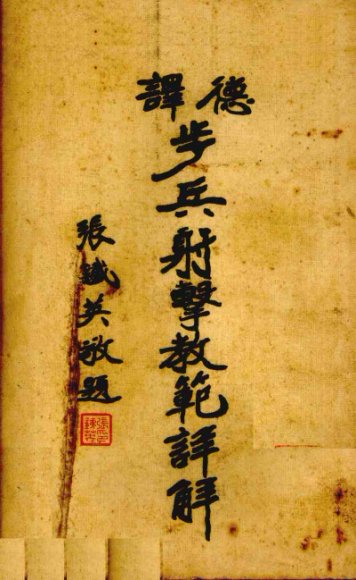 德譯
步兵射擊教範詳解
張鐵英敬題